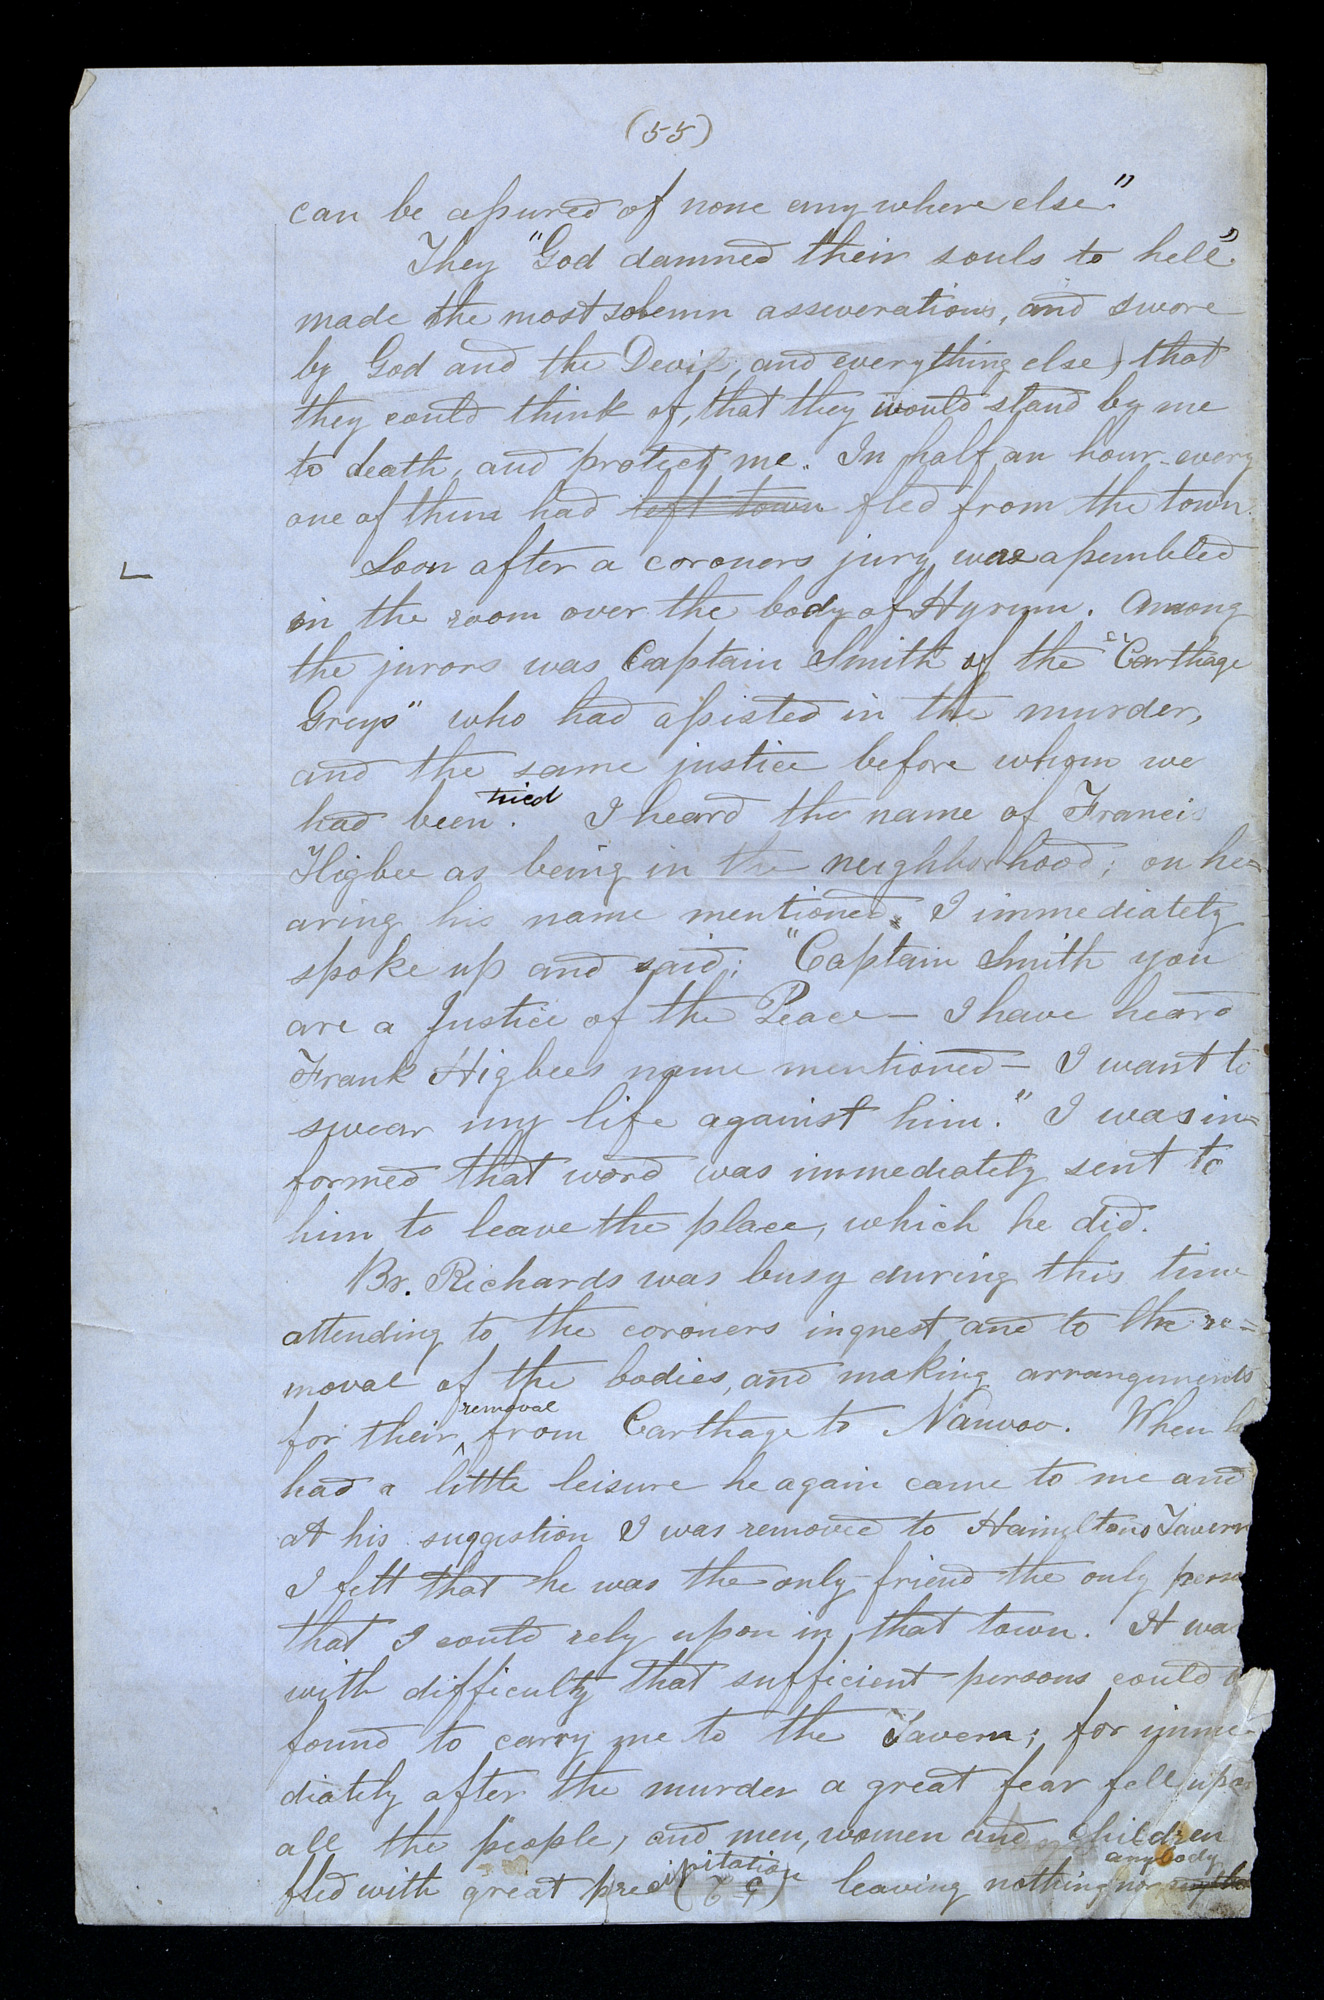 (55)
can be assured of none any where else."
They "God damned their souls to hell".
made the most solemn asseverations, and swore
by God and the Devil, and everything else, that
they could think of, that they would stand by me
to death, and protect me. In half an hour every
one of them had left town fled from the town.
Soon after a coroners jury was assembled
in the room over the body of Hyrum. Among
the jurors was Captain Smith of the "Carthage
Greys" who had assisted in the murder,
and the same justice before whom we
had been tried. I heard the name of Francis
Higbee as being in the neighborhood; on he=
aring his name mentioned, I immediately
spoke up and said; "Captain Smith you
are a Justice of the Peace — I have heard
Frank Higbees name mentioned — I want to
swear my life against him." I was in=
formed that word was immediately sent to
him to leave the place, which he did.
Br. Richards was busy during this time
attending to the coroners inquest and to the re=
moval of the bodies, and making arrangements
for their removal from Carthage to Nauvoo. When
had a little leisure he again came to me and
at his suggestion I was removed to Hamiltons Tavern
I felt that he was the only friend the only perso
that I could rely upon in that town. It was
with difficulty that sufficient persons could
found to carry me to the Tavern; for imme-
diately after the murder a great fear fell upon
all the people, and men, women and children
fled with great precipitation leaving nothing nor anybody